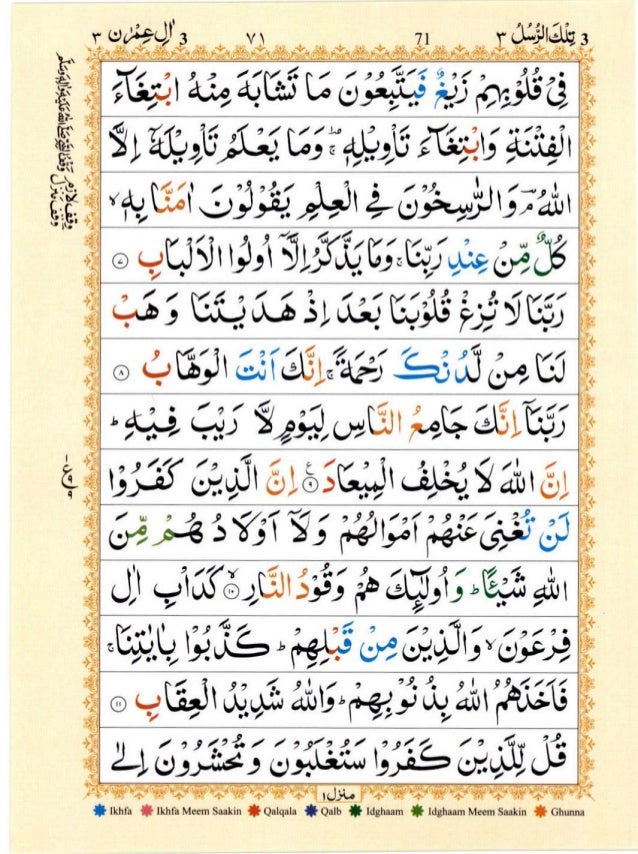 اٰلِ عِمْرٰن ٣
3
٧١
71
تِلْكَ الرُّسُلُ ٣
3
فِیْ قُلُوْبِهِمْ زَیْغٌ فَیَتَّبِعُوْنَ مَا تَشَابَهَ مِنْهُ ابْتِغَآءَ
الْفِتْنَةِ وَابْتِغَآءَ تَاْوِیْلِهٖ ۚ وَمَا یَعْلَمُ تَاْوِیْلَهٗۤ اِلَّا
اللّٰهُ ۘ وَالرّٰسِخُوْنَ فِی الْعِلْمِ یَقُوْلُوْنَ اٰمَنَّا بِهٖ ۙ
كُلٌّ مِّنْ عِنْدِ رَبِّنَا ۚ وَمَا یَذَّكَّرُ اِلَّاۤ اُولُوا الْاَلْبَابِ ٧
رَبَّنَا لَا تُزِغْ قُلُوْبَنَا بَعْدَ اِذْ هَدَیْتَنَا وَهَبْ
لَنَا مِنْ لَّدُنْكَ رَحْمَةً ۚ اِنَّكَ اَنْتَ الْوَهَّابُ ٨
رَبَّنَاۤ اِنَّكَ جَامِعُ النَّاسِ لِیَوْمٍ لَّا رَیْبَ فِیْهِ ؕ
اِنَّ اللّٰهَ لَا یُخْلِفُ الْمِیْعَادَ ٩ اِنَّ الَّذِیْنَ كَفَرُوْا
لَنْ تُغْنِیَ عَنْهُمْ اَمْوَالُهُمْ وَلَاۤ اَوْلَادُهُمْ مِّنَ
اللّٰهِ شَیْـًٔا ؕ وَاُولٰٓئِكَ هُمْ وَقُوْدُ النَّارِ ۙ ١٠ كَدَاْبِ اٰلِ
فِرْعَوْنَ ۙ وَالَّذِیْنَ مِنْ قَبْلِهِمْ ؕ كَذَّبُوْا بِاٰیٰتِنَا ۚ
فَاَخَذَهُمُ اللّٰهُ بِذُنُوْبِهِمْ ؕ وَاللّٰهُ شَدِیْدُ الْعِقَابِ ١١
قُلْ لِّلَّذِیْنَ كَفَرُوْا سَتُغْلَبُوْنَ وَتُحْشَرُوْنَ اِلٰی
منزل ١
Ikhfa Ikhfa Meem Saakin Qalqala Qalb Idghaam Idghaam Meem Saakin Ghunna